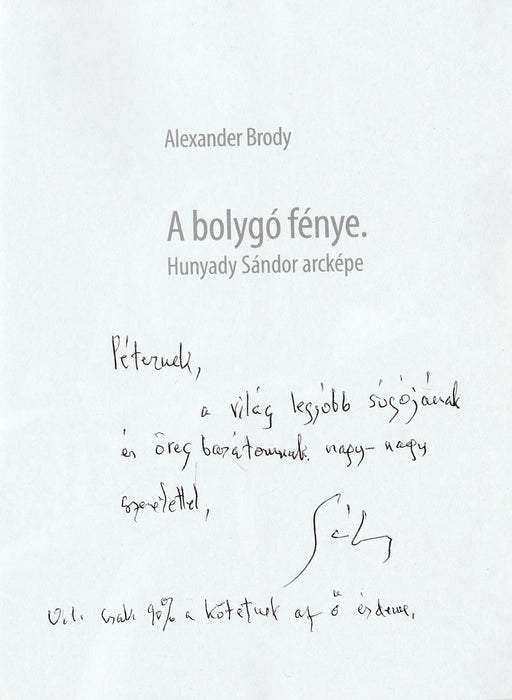 Alexander Brody
A bolygó fénye.
Hunyady Sándor arcképe
Péternek,
a világ legjobb súgójának
és öreg barátomnak nagy-nagy
szeretettel,
csak 90% a kötetnek az ő érdeme,